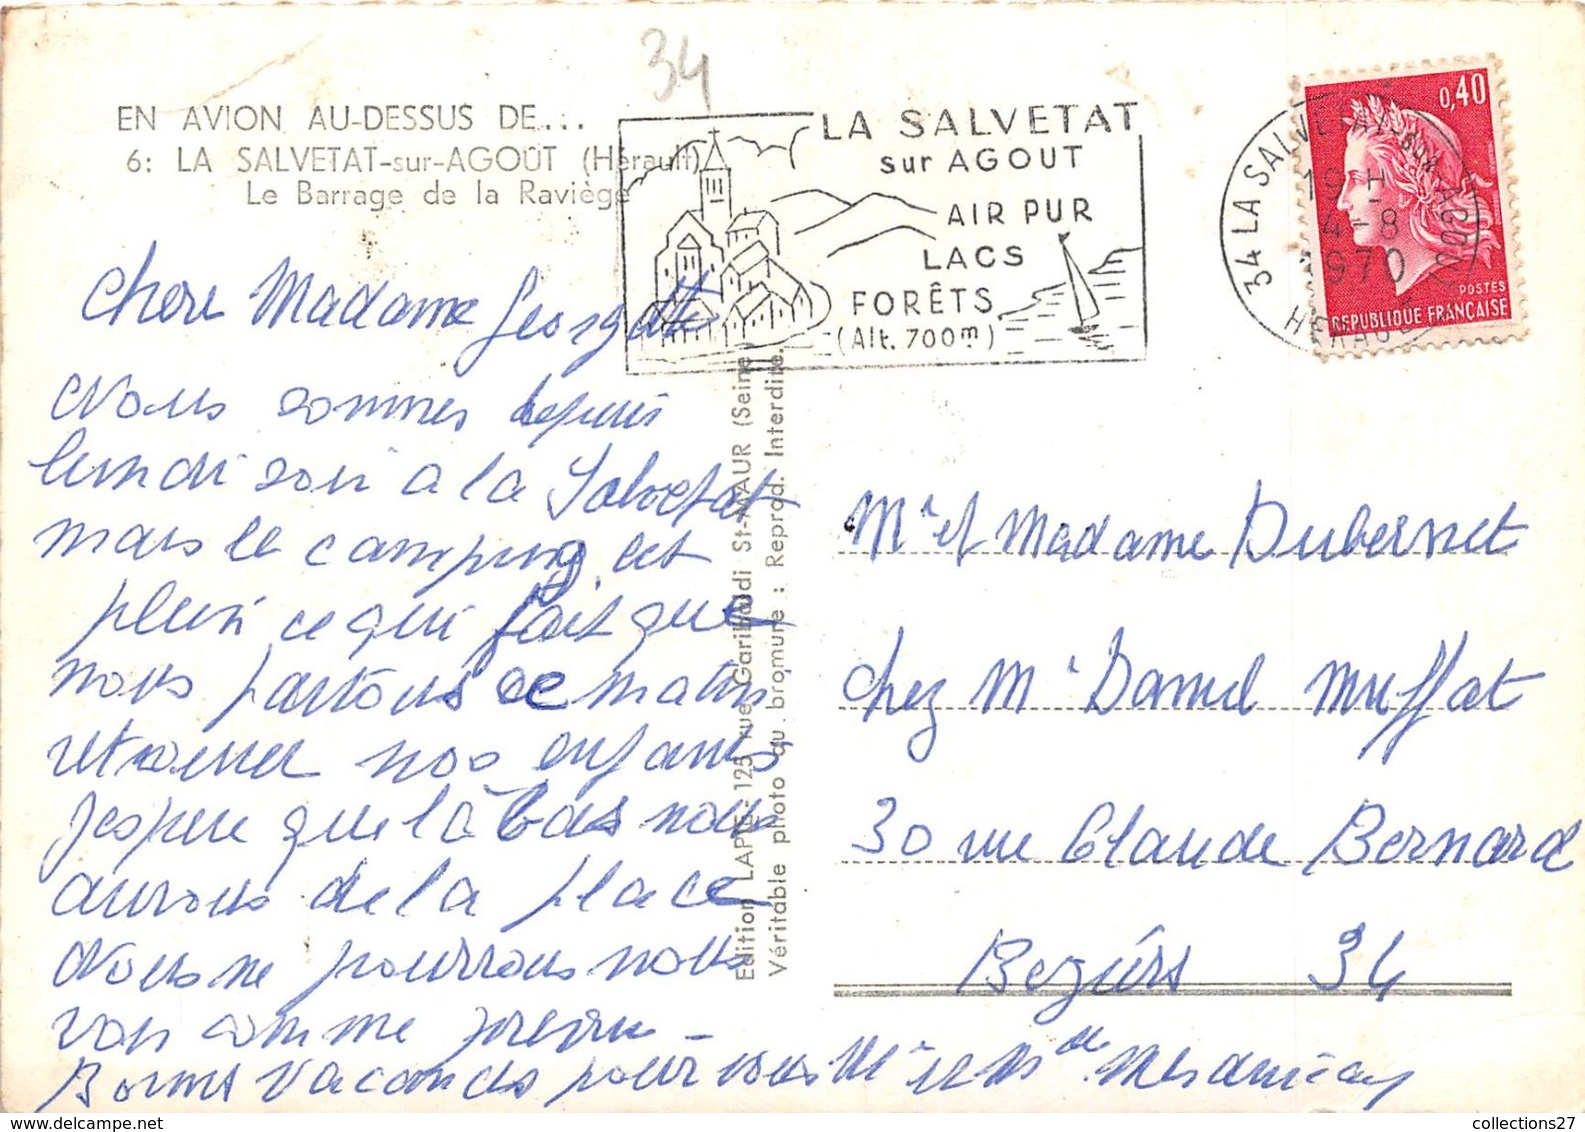 34
EN AVION AU-DESSUS DE...
6: LA SALVETAT-sur-AGOUT (Hérault)
Le Barrage de la Raviège
LA SALVETAT
sur AGOUT
AIR PUR
LACS
FORÊTS
(Alt. 700m)
34 LA SALVETAT-SUR-AGOUT
19 H
4-8
1970
HERAULT
0,40
POSTES
REPUBLIQUE FRANÇAISE
Chere Madame Georgette
Nous sommes depuis
lundi soir a la Salvetat
mais le camping est
plein ce qui fait que
nous partons ce matin
retrouver nos enfants
j'espere que là bas nous
aurons de la place
Nous ne pourrons nous
voir comme prevu -
Bonnes Vacances pour vous Mr et Mde
Edition LAPIE, 125 rue Garibaldi St-MAUR (Seine)
Véritable photo au bromure : Reprod. Interdite.
Mr et Madame Dubernet
chez Mr Daniel Muffat
30 rue Claude Bernard
Beziérs 34
collections27